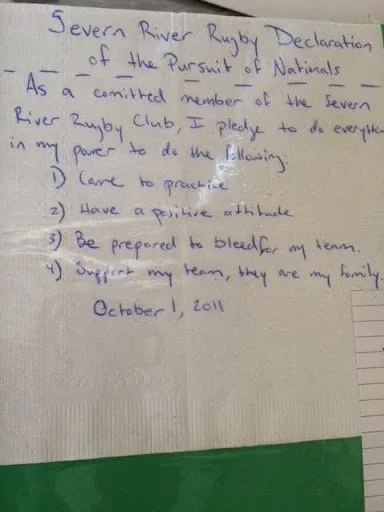 Severn River Rugby Declaration
of the Pursuit of Nationals
As a comitted member of the Severn
River Rugby Club, I pledge to do everythi
in my power to do the following:
1) Come to practice
2) Have a positive attitude
3) Be prepared to bleed for my team.
4) Support my team, they are my family.
October 1, 2011